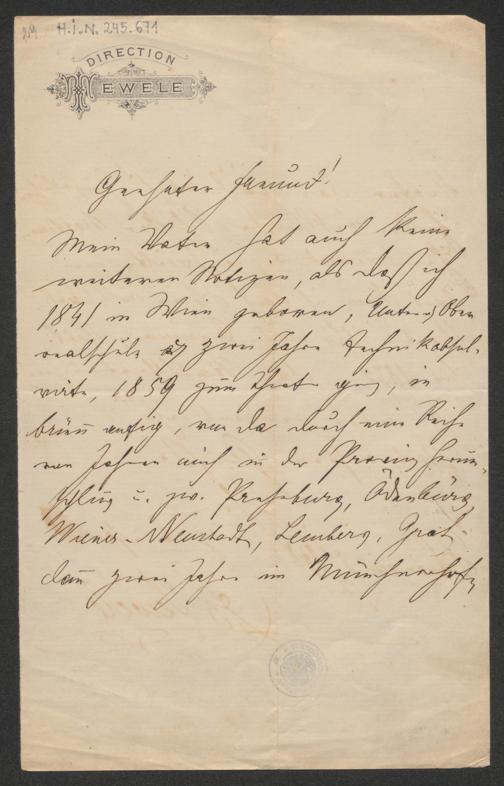 219
H.I.N. 245.671
DIRECTION
TEWELE
Geehrter Freund!
Mein Vater hat auch keine
weiteren Notizen, als daß ich
1841 in Wien geboren, Unter- u. Ober
realschule u. zwei Jahre Technik absol-
virte, 1859 zum Theater ging, in
Brünn anfing, von da durch eine Reihe
von Jahren mich in der Provinz herum-
schlug u. zw. Preßburg, Ödenburg,
Wiener-Neustadt, Lemberg, Graz.
dann zwei Jahre im Münchner Hof